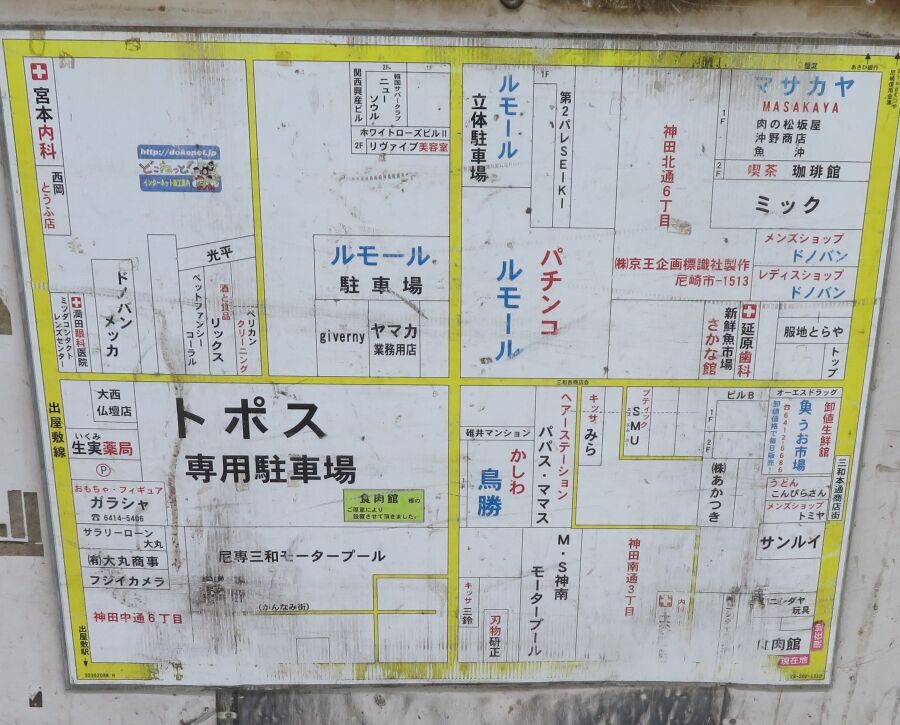 宮本内科
西岡
とうふ店
http://dokonet.jp
どこねっと
インターネット商工案内
光平
ドノバン
メッカ
ペットファンシー
コーラル
酒と食品
リックス
ペリカン
クリーニング
ミツダコンタクト
レンズセンター
満田眼科医院
関西興産ビル
2F
1F
ニュー
ソウル
韓国サパークラブ
ホワイトローズビルⅡ
2F リヴァイブ美容室
ルモール
駐車場
giverny
ヤマカ
業務用店
ルモール
立体駐車場
1F
第2パレSEIKI
パチンコ
ルモール
神田北通6丁目
㈱京王企画標識社製作
尼崎市-1513
マサカヤ
MASAKAYA
1F
肉の松坂屋
沖野商店
魚 沖
2F
喫茶 珈琲館
ミック
メンズショップ
ドノバン
レディスショップ
ドノバン
新鮮魚市場
さかな館
延原歯科
服地とらや
トップ
三和西商店会
出屋敷線
大西
仏壇店
いくみ
生実薬局
P
おもちゃ・フィギュア
ガラシャ
☎ 6414-5406
サラリーローン
大丸
㈲大丸商事
フジイカメラ
神田中通6丁目
出屋敷駅
トポス
専用駐車場
食肉館 様の
ご厚意により
設置させて頂きました。
尼専三和モータープール
(かんなみ街)
碓井マンション
かしわ
鳥勝
ヘアーステーション
パパス・ママス
キッサ
みら
ブティック
SMU
M・S神南
モータープール
キッサ
三鈴
刃物研正
神田南通3丁目
ビルB
1F
2F
㈱あかつき
オーエスドラッグ
卸値生鮮館
魚うお市場
☎6412-6686
卸値価格で毎日販売!
うどん
こんぴらさん
メンズショップ
トミヤ
三和本通商店街
サンルイ
玩具
食肉館
現在地
現在地